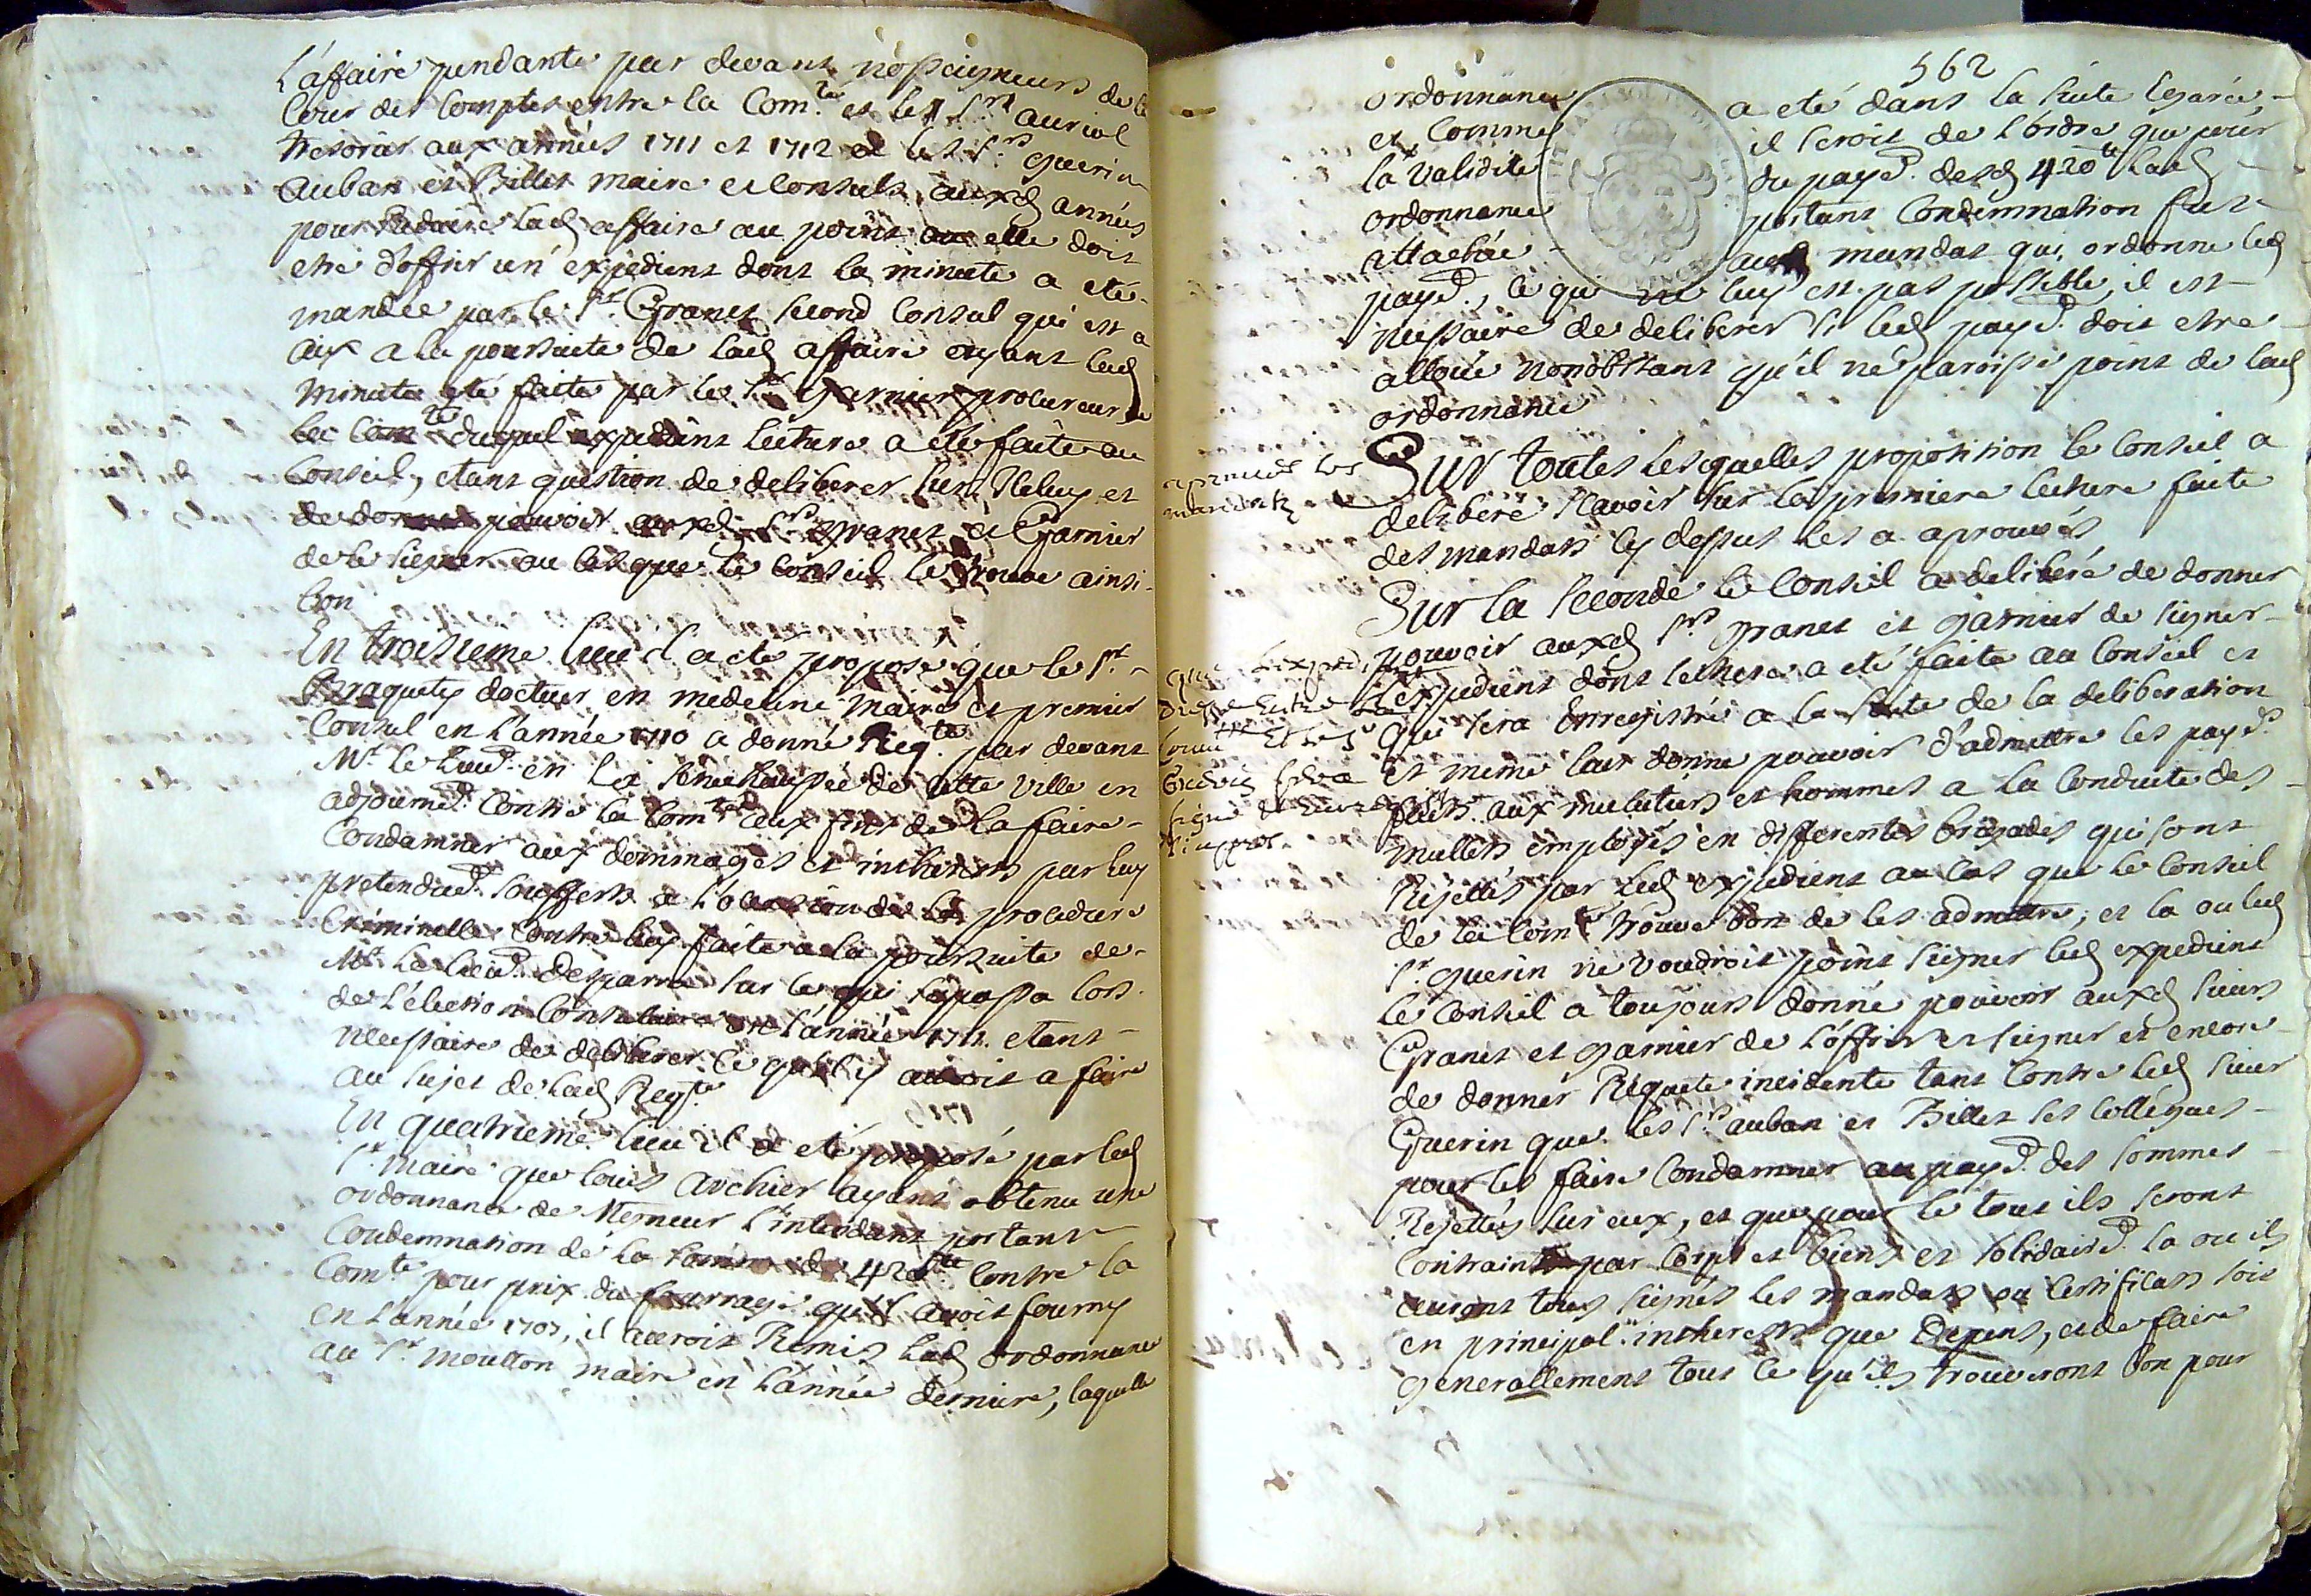 L'affaire pendante par devant nosseigneurs de la
Cour des Comptes entre la Com.te et les Srs auriol
tresorier aux années 1711 et 1712 et les Srs guerin
auban et Billet maire et Consuls auxd années
pour Reduire lad affaire au point ou elle doit
etre d'offrir un expedient dont la minute a eté
mandée par le Sr Granet second Consul qui est a
aix a la poursuite de lad affaire ayant lad
minute eté faite par le Sr Garnier procureur de
la Com.te duquel expedient lecture a eté faite au
Conseil, etant question de deliberer sur Iceluy et
de donner pouvoir auxd Srs Granet et Garnier
de le signer au cas que le Conseil le trouve ainsi
bon
En troisieme lieu il a eté proposé que le Sr
Braquety docteur en medecine maire et premier
Consul en l'année 1710 a donné Reqte par devant
Mr le Lieut en la senechaussée de cette ville en
adjournet contre la Comte aux fins de la faire
Condamner aux dommages et intherets par luy
pretenduet soufferts a l'occasion de la procedure
Criminelle contre luy faite a la poursuite de
Mr le lieut desparra sur ce qui se passa lors
de l'election Consulaire de l'année 1711. etant
necessaire de deliberer ce qu'il y auroit a faire
au sujet de lad Reqte
En quatrieme lieu il a eté proposé par led
Sr maire que louis archier ayant obtenu une
ordonnance de Mgneur l'intendant portant
Condemnation de la somme de 420 lt contre la
Comte pour prix du fourrage qu'il avoit fourny
en l'année 1707, il auroit Remis lad ordonnance
au Sr moutton maire en l'année derniere, laquelle
562
ordonnance a eté dans la suite egarée,
et Comme il seroit de l'ordre que pour
la validité du payet desd 420 lt lad
ordonnance portant Condemnation fut
attachée aud mandat qui ordonne led
payet, ce qui ne luy est pas possible, il est
nessaire de deliberer si led payet doit etre
alloué nonobstant qu'il ne paroisse point de lad
ordonnance
aprouvés les
mandats
Sur toutes lesquelles proposition le Conseil a
deliberé sçavoir sur la premiere lecture faite
des mandats cy dessus les a aprouvés
Sur la seconde le Conseil a deliberé de donner
pouvoir auxd Srs granet et garnier de signer
L'expedient dont lecture a eté faite au Conseil et
qui sera Enregistré a la suite de la deliberation
Et meme leur donne pouvoir d'admettre les payets
faits aux muletiers et hommes a la Conduite des
mullets employés en differentes brigades qui sont
Rejettés par led expedient au cas que le Conseil
de la Comte trouve bon de les admettre, et la ou led
Sr guerin ne voudroit point signer led expedient
le Conseil a toujours donné pouvoir auxd sieurs
Granet et garnier de l'offrir et signer et encore
de donner Requete incidente tant Contre led sieur
Guerin que les Srs auban et Billet ses collegues
pour les faire Condamner au payet des sommes
Rejettés sur eux, et que pour le tout ils seront
Contraints par Corps et biens et solidairet la ou ils
auront tous signés les mandats ou certificats soit
en principal intherets que depens, et de faire
generallement tout ce qu'ils trouveront bon pour